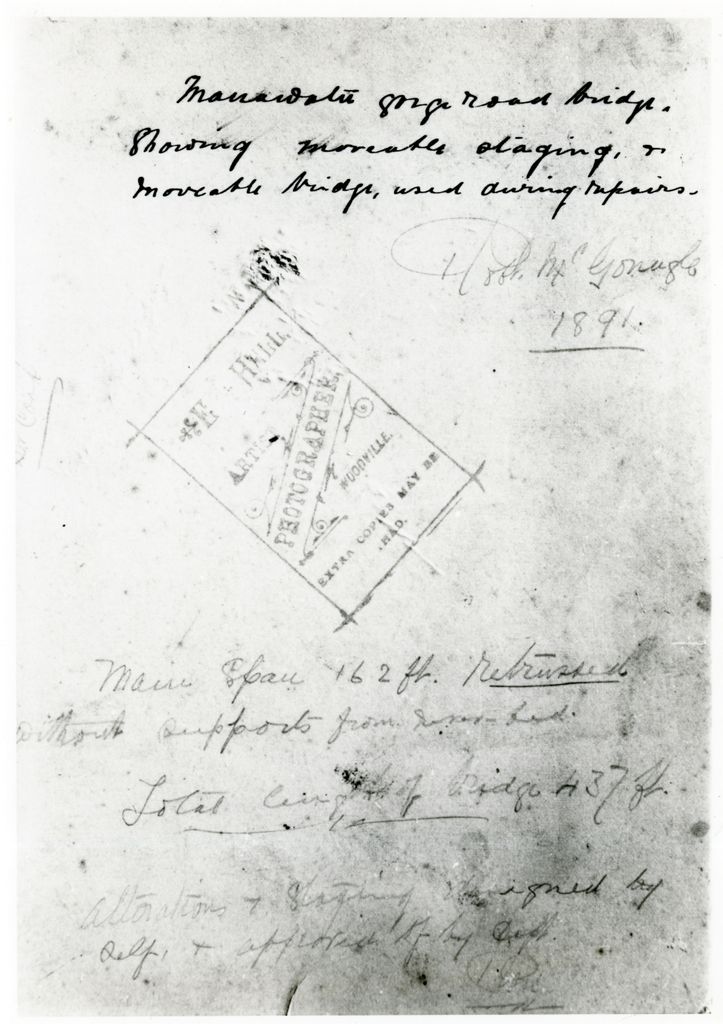 Manawatu gorge road bridge.
Showing moveable staging, &
moveable bridge, used during repairs.
Mc Gonagle
1891.
HALL
ARTIST
PHOTOGRAPHER,
WOODVILLE.
EXTRA COPIES MAY BE
HAD.
Main Span 162 ft. Retrussed
without supports from river-bed.
Total length of bridge 437 ft.
Alterations & Staging designed by
self, & approved of by Dept